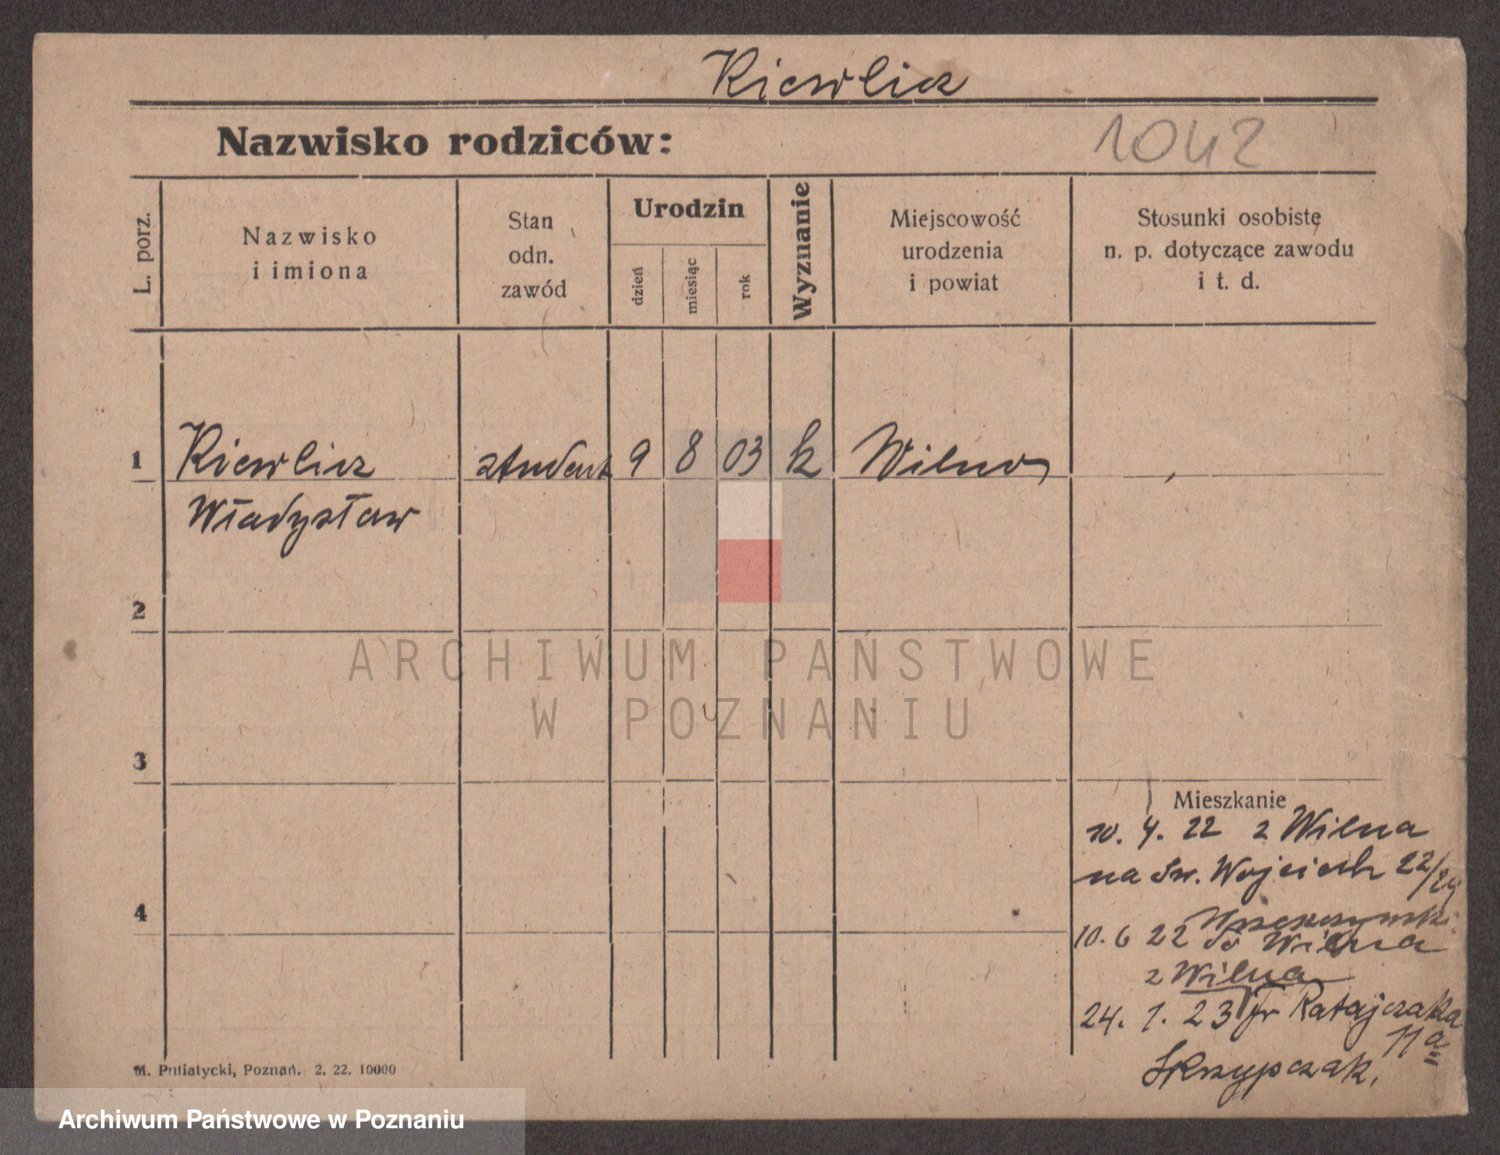 Kiewlicz
Nazwisko rodziców:
1042
L. porz.
Nazwisko
i imiona
Stan
odn.
zawód
Urodzin
dzień
miesiąc
rok
Wyznanie
Miejscowość
urodzenia
i powiat
Stosunki osobistę
n. p. dotyczące zawodu
i t. d.
1 Kiewlicz student 9 8 03 k Wilno
Władysław
2
ARCHIWUM PAŃSTWOWE
W POZNANIU
3
Mieszkanie
10. 4. 22 z Wilna
na Św. Wojciech 22/24
4
10. 6 22 do Wilna
z Wilna
24. 1. 23 Fr Ratajczaka
11a
Skrzypczak.
M. Putiatycki, Poznań. 2. 22. 10000
Archiwum Państwowe w Poznaniu